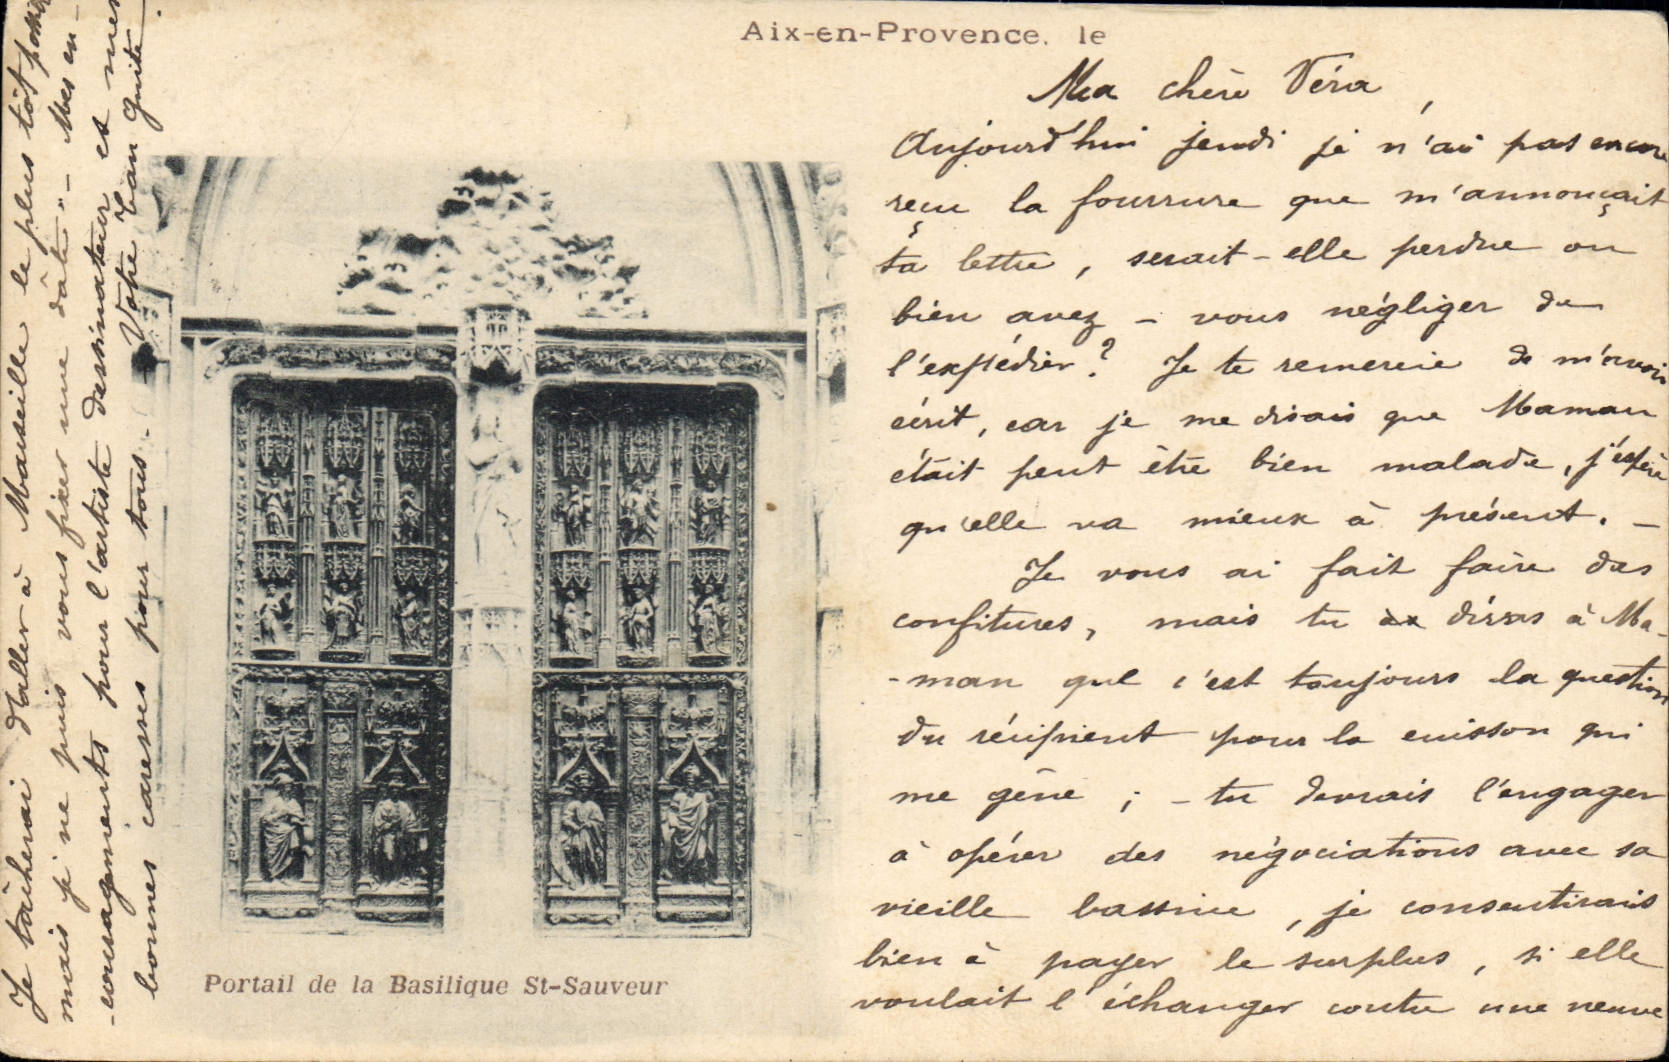 Aix-en-Provence, le
Ma chère Véra,
Aujourd'hui jeudi je n'ai pas encore
reçu la fourrure que m'annonçait
ta lettre, serait-elle perdue ou
bien avez-vous négliger de
l'expédier? Je te remercie de m'avoir
écrit, car je me disais que Maman
était peut être bien malade, j'espère
qu'elle va mieux à présent. -
Je vous ai fait faire des
confitures, mais tu diras à Ma-
-man que c'est toujours la question
du récipient pour la cuisson qui
me gêne; - tu devrais l'engager
à opérer des négociations avec sa
vieille bassine, je consentirais
bien à payer le surplus, si elle
voulait l'échanger contre une neuve
Je tâcherai d'aller à Marseille le plus tôt possible
mais je ne puis vous fixer une date. - Mes en-
-couragements pour l'artiste dessinateur et mes
bonnes caresses pour tous. - Votre
Portail de la Basilique St-Sauveur